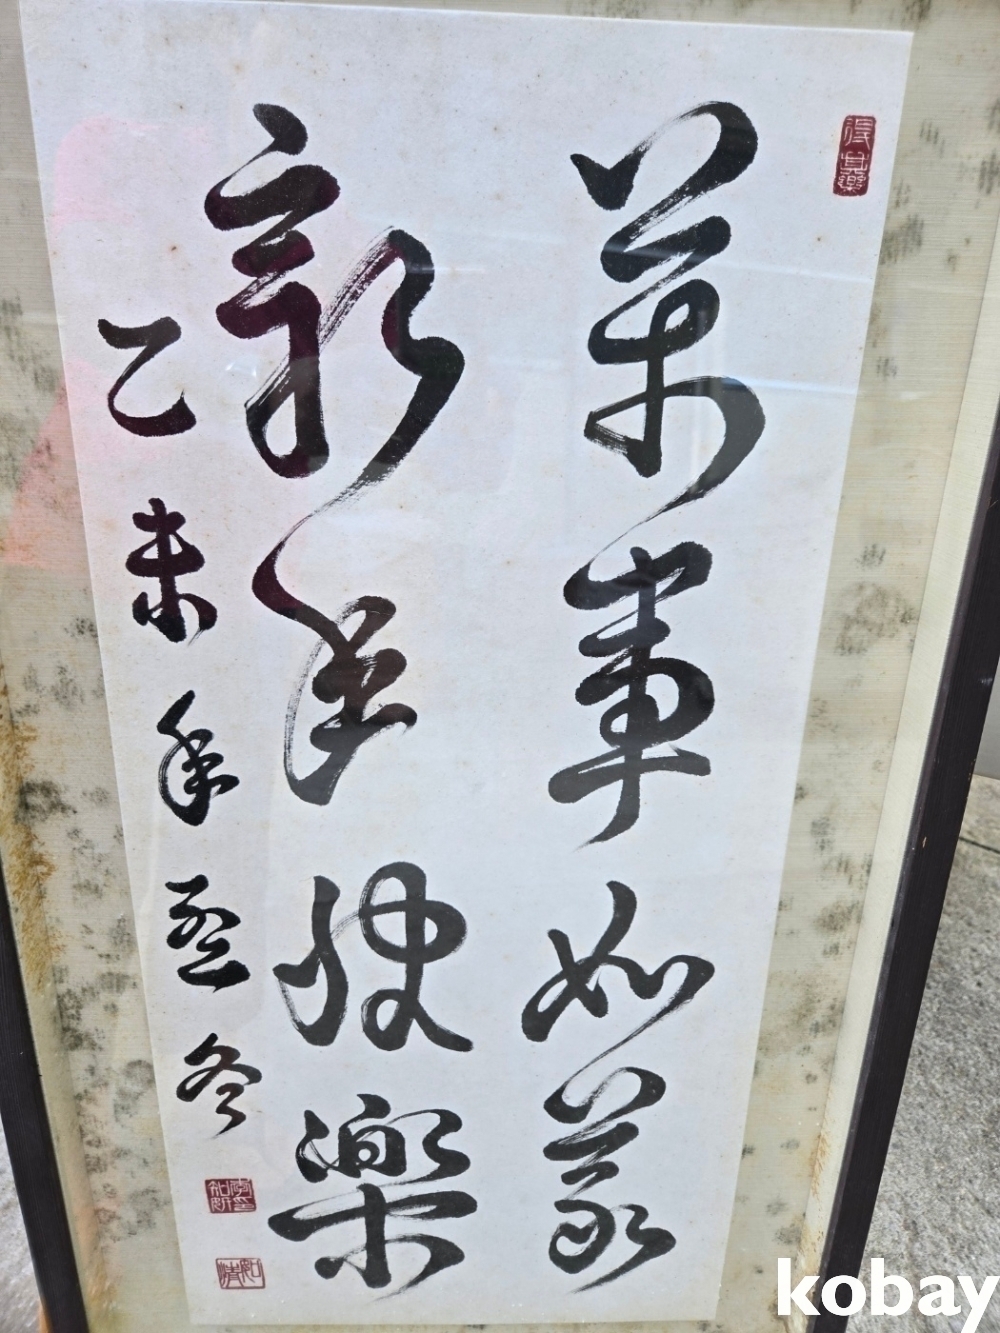 得其樂
萬事如意
新年快樂
乙未年孟冬